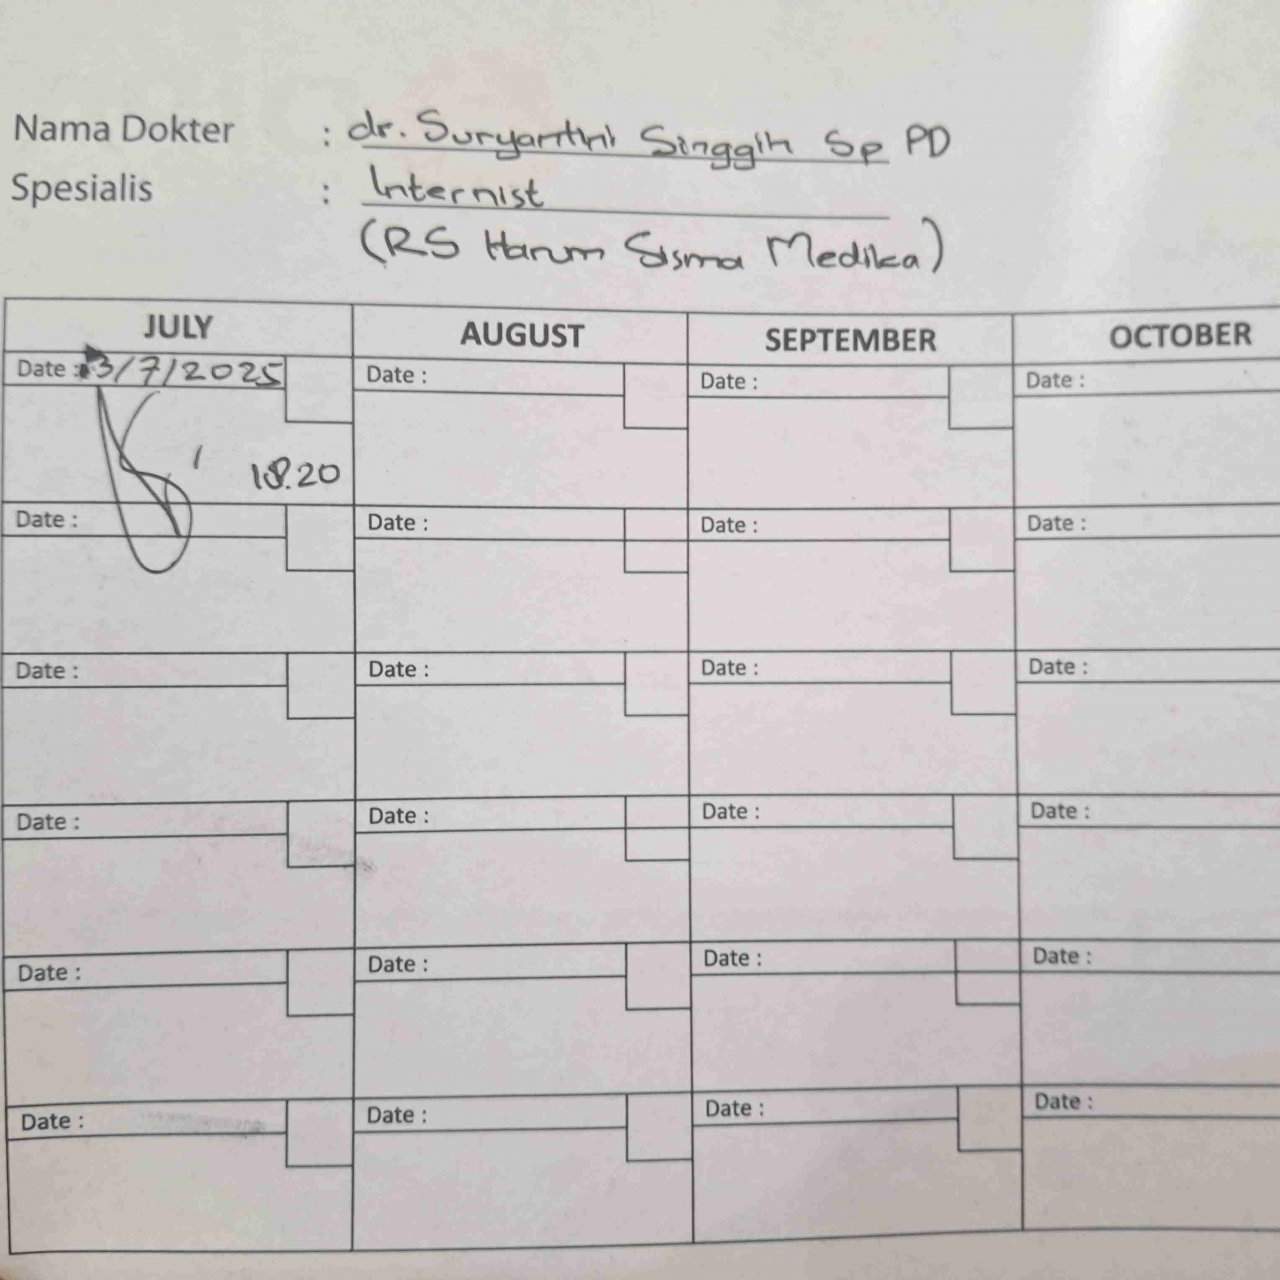 Nama Dokter : dr. Suryanthi Singgih Sp PD
Spesialis : Internist
(RS Harum Sisma Medika)
JULY AUGUST SEPTEMBER OCTOBER
Date : 3/7/2025 Date : Date : Date :
18.20
Date : Date : Date : Date :
Date : Date : Date : Date :
Date : Date : Date : Date :
Date : Date : Date : Date :
Date : Date : Date : Date :